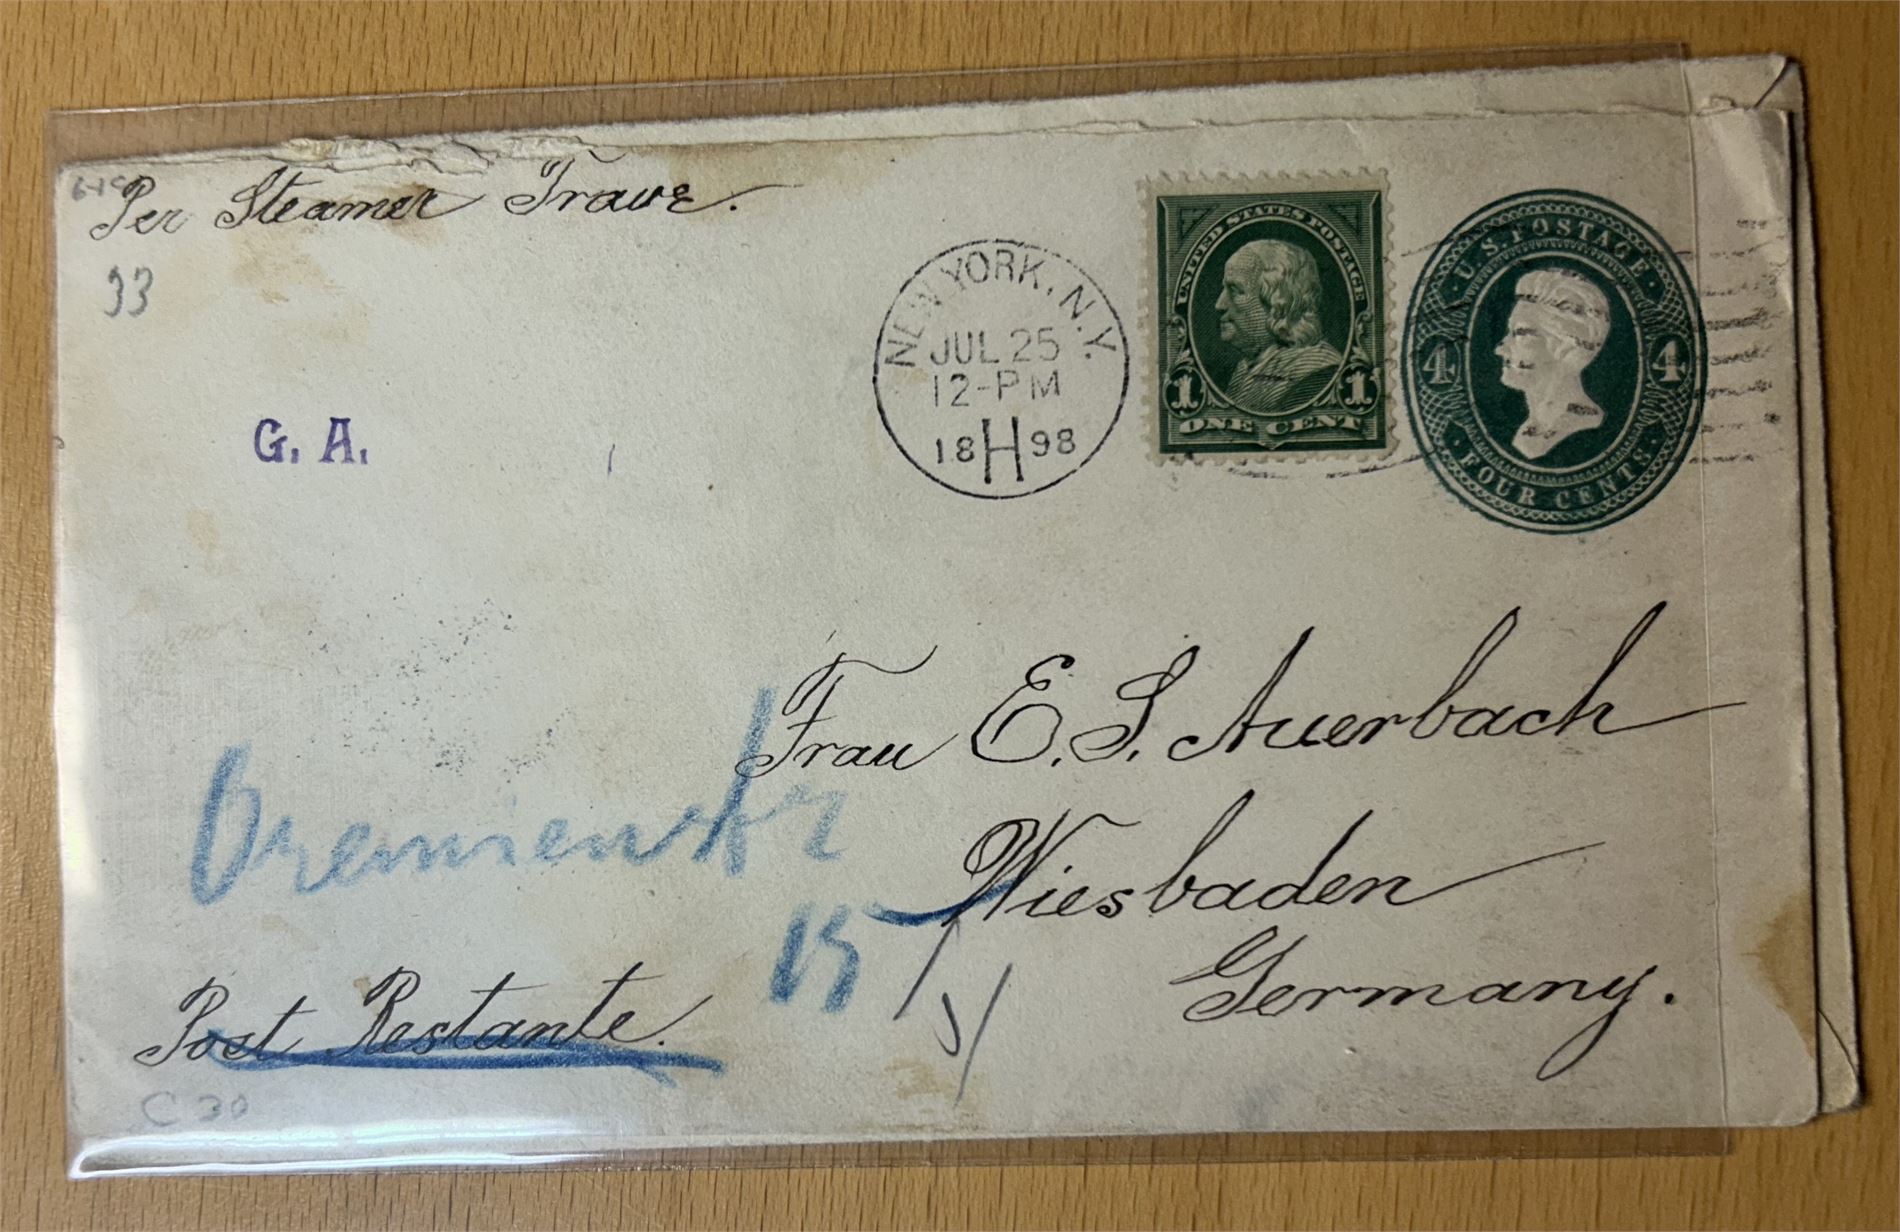 Per Steamer Trave.
33
G. A.
NEW YORK, N.Y.
JUL 25
12-PM
18 H 98
UNITED STATES POSTAGE
1 1
ONE CENT
U.S. POSTAGE
4 4
FOUR CENTS
Frau E. S. Auerbach
Wiesbaden
Germany.
15
Post Restante.
C 30